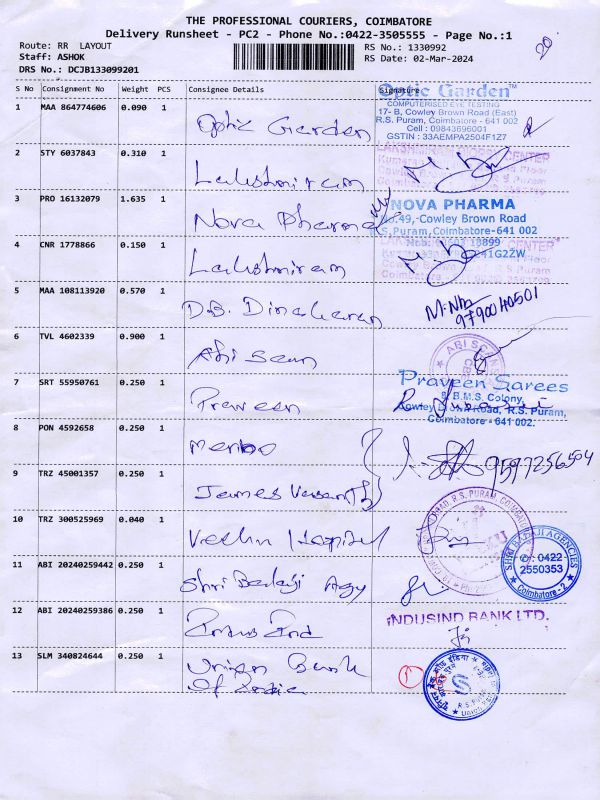 THE PROFESSIONAL COURIERS, COIMBATORE
Delivery Runsheet - PC2 - Phone No.:0422-3505555 - Page No.:1
Route: RR LAYOUT
Staff: ASHOK
DRS No.: DCJB133099201
RS No.: 1330992
RS Date: 02-Mar-2024
20
S No Consignment No Weight PCS Consignee Details Signature
1 MAA 864774606 0.090 1 Optic Garden
Optic Garden
COMPUTERISED EYE TESTING
17- B, Cowley Brown Road (East)
R.S. Puram, Coimbatore - 641 002
Cell : 09843696001
GSTIN : 33AEMPA2504F1Z7
2 STY 6037843 0.310 1 Lakshmiram
3 PRO 16132079 1.635 1 Nova Pharma
NOVA PHARMA
No.49, Cowley Brown Road
R.S.Puram, Coimbatore-641 002
4 CNR 1778866 0.150 1 Lakshmiram
5 MAA 108113920 0.570 1 D.B. Dinakaran
9790040501
6 TVL 4602339 0.900 1 Abi Scan
ABI SCAN
7 SRT 55950761 0.250 1 Praveen
Praveen Sarees
B.M.S. Colony,
Cowley Brown Road, R.S. Puram,
Coimbatore - 641 002.
8 PON 4592658 0.250 1
9597256504
9 TRZ 45001357 0.250 1 James Vasanth
10 TRZ 300525969 0.040 1 Hospital
R.S. PURAM, COIMBATORE
11 ABI 20240259442 0.250 1 Shri Balaji Agy
SHRI BALAJI AGENCIES
0422
2550353
Coimbatore - 2
12 ABI 20240259386 0.250 1
INDUSIND BANK LTD.
13 SLM 340824644 0.250 1 Union Bank
Of India